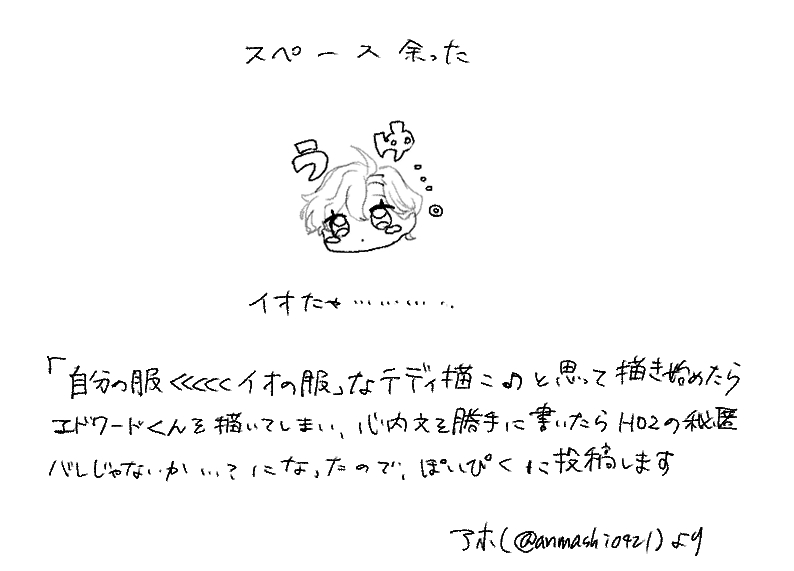 スペース 余った
うゆ…。
イオたゃ…………
「自分の服<<<<<イオの服」なテディ描こ♪と思って描き始めたら
エドワードくんを描いてしまい、心内文を勝手に書いたらHO2の秘匿
バレじゃないか…？になったので、ぽいぴくに投稿します
アホ(@anmashi0421)より